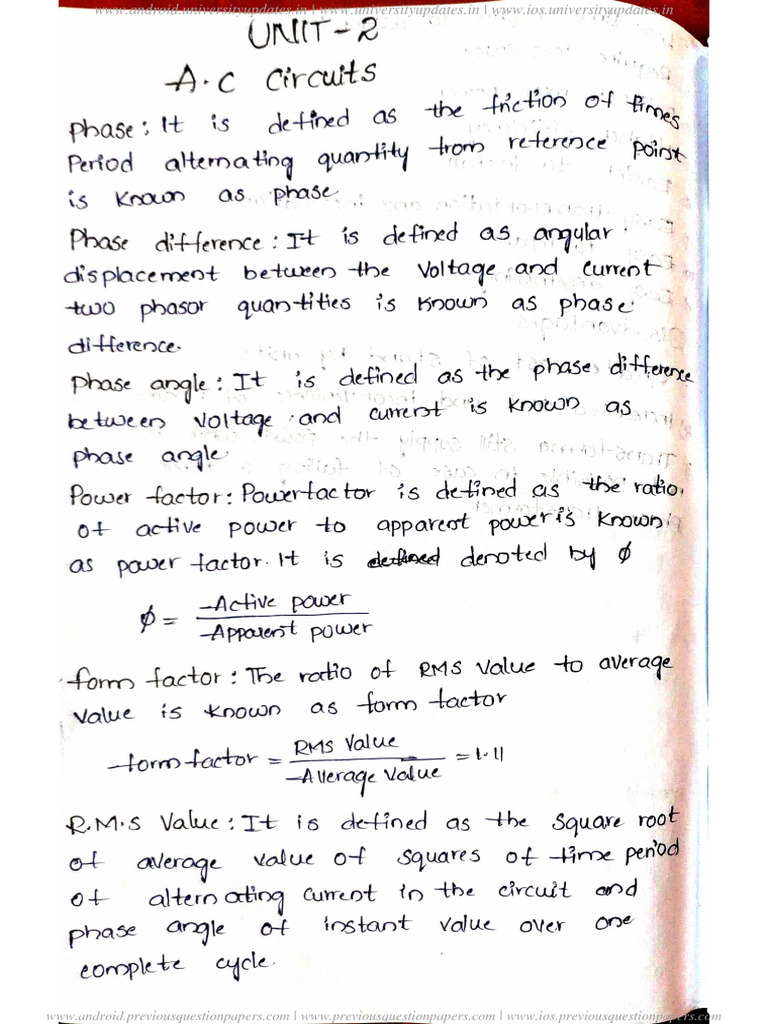 www.android.universityupdates.in | www.universityupdates.in | www.ios.universityupdates.in
UNIT-2
A.C Circuits
Phase: It is defined as the friction of times
Period alternating quantity from reference point
is known as phase
Phase difference: It is defined as angular
displacement between the voltage and current
two phasor quantities is known as phase
difference.
Phase angle: It is defined as the phase difference
between voltage and current is known as
phase angle
Power factor: Powerfactor is defined as the ratio.
of active power to apparent power is known
as power factor. It is defined denoted by ϕ
ϕ = Active power
Apparent power
form factor: The ratio of RMS value to average
value is known as form factor
form factor = RMS value = 1.11
Average value
R.M.S Value: It is defined as the square root
of average value of squares of time period
of alternating current in the circuit and
phase angle of instant value over one
complete cycle.
www.android.previousquestionpapers.com | www.previousquestionpapers.com | www.ios.previousquestionpapers.com